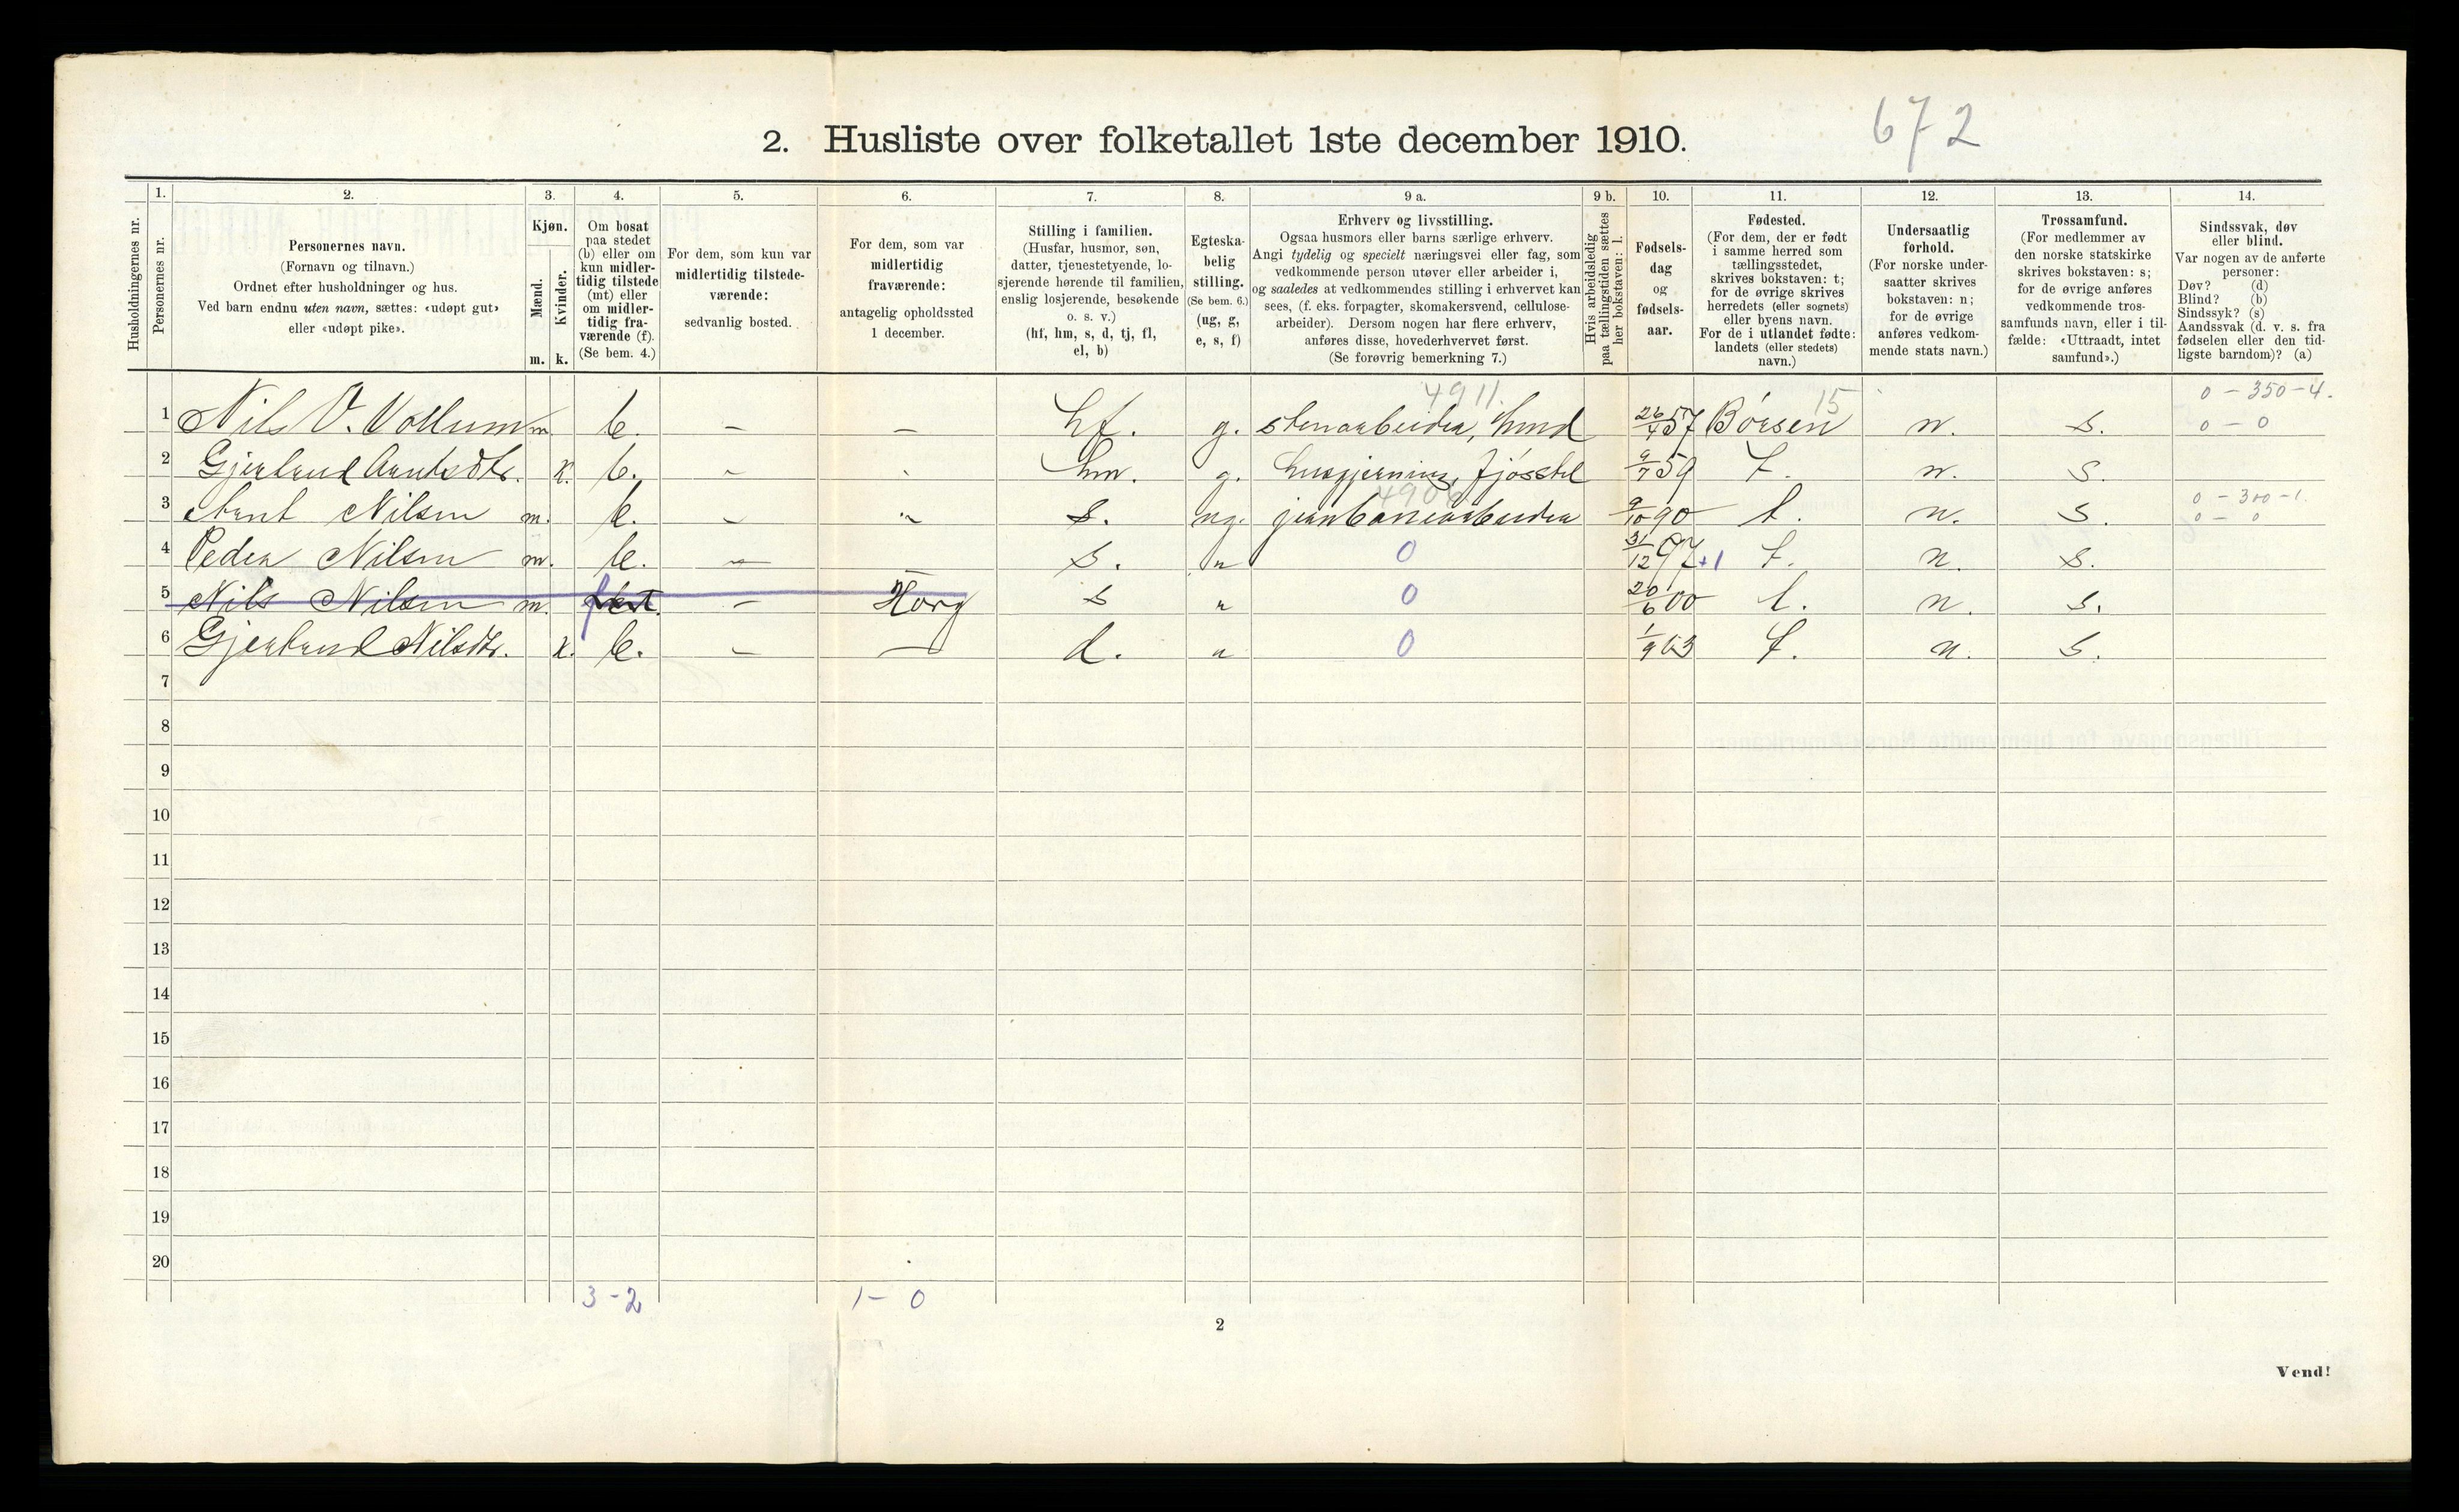 672
2. Husliste over folketallet 1ste december 1910.
Husholdningernes nr.
1.
Personernes nr.
2.
Personernes navn.
(Fornavn og tilnavn.)
Ordnet efter husholdninger og hus.
Ved barn endnu uten navn, sættes: «udøpt gut»
eller «udøpt pike».
3.
Kjøn.
Mænd.
Kvinder.
m. k.
4.
Om bosat
paa stedet
(b) eller om
kun midler-
tidig tilstede
(mt) eller
om midler-
tidig fra-
værende (f).
(Se bem. 4.)
5.
For dem, som kun var
midlertidig tilstede-
værende:
sedvanlig bosted.
6.
For dem, som var
midlertidig
fraværende:
antagelig opholdssted
1 december.
7.
Stilling i familien.
(Husfar, husmor, søn,
datter, tjenestetyende, lo-
sjerende hørende til familien,
enslig losjerende, besøkende
o. s. v.)
(hf, hm, s, d, tj, fl,
el, b)
8.
Egteska-
belig
stilling.
(Se bem. 6.)
(ug, g,
e, s, f)
9 a.
Erhverv og livsstilling.
Ogsaa husmors eller barns særlige erhverv.
Angi tydelig og specielt næringsvei eller fag, som
vedkommende person utøver eller arbeider i,
og saaledes at vedkommendes stilling i erhvervet kan
sees, (f. eks. forpagter, skomakersvend, cellulose-
arbeider). Dersom nogen har flere erhverv,
anføres disse, hovederhvervet først.
(Se forøvrig bemerkning 7.)
9 b.
Hvis arbeidsledig
paa tællingstiden sættes
her bokstaven: l.
10.
Fødsels-
dag
og
fødsels-
aar.
11.
Fødested.
(For dem, der er født
i samme herred som
tællingsstedet,
skrives bokstaven: t;
for de øvrige skrives
herredets (eller sognets)
eller byens navn.
For de i utlandet fødte:
landets (eller stedets)
navn.)
12.
Undersaatlig
forhold.
(For norske under-
saatter skrives
bokstaven: n;
for de øvrige
anføres vedkom-
mende stats navn.)
13.
Trossamfund.
(For medlemmer av
den norske statskirke
skrives bokstaven: s;
for de øvrige anføres
vedkommende tros-
samfunds navn, eller i til-
fælde: «Uttraadt, intet
samfund».)
14.
Sindssvak, døv
eller blind.
Var nogen av de anførte
personer:
Døv? (d)
Blind? (b)
Sindssyk? (s)
Aandssvak (d. v. s. fra
fødselen eller den tid-
ligste barndom)? (a)
4911. 15 0 - 350 - 4.
1 Nils V. Vollum m. b. - - hf. g. stenarbeider, 26/4 57 Børsen n. s. 0 - 0
2 Gjertrud Arntsdtr. k. b. - hm. g. husgjerning, fjøsstel 9/7 59 t. n. s.
4906 0 - 300 - 1.
3 Arnt Nilsen m. b. - " s. ug. jernbanearbeider 9/10 90 t. n. s. 0 - 0
4 Peder Nilsen m. b. - - s. " 0 31/12 97 +1 t. n. s.
5 Nils Nilsen m. f - Horg s " 0 20/6 00 t. n. s.
6 Gjertrud Nilsdtr. k. b. - - d. " 0 1/9 03 t. n. s.
7
8
9
10
11
12
13
14
15
16
17
18
19
20
3 - 2 1 - 0
2
Vend!